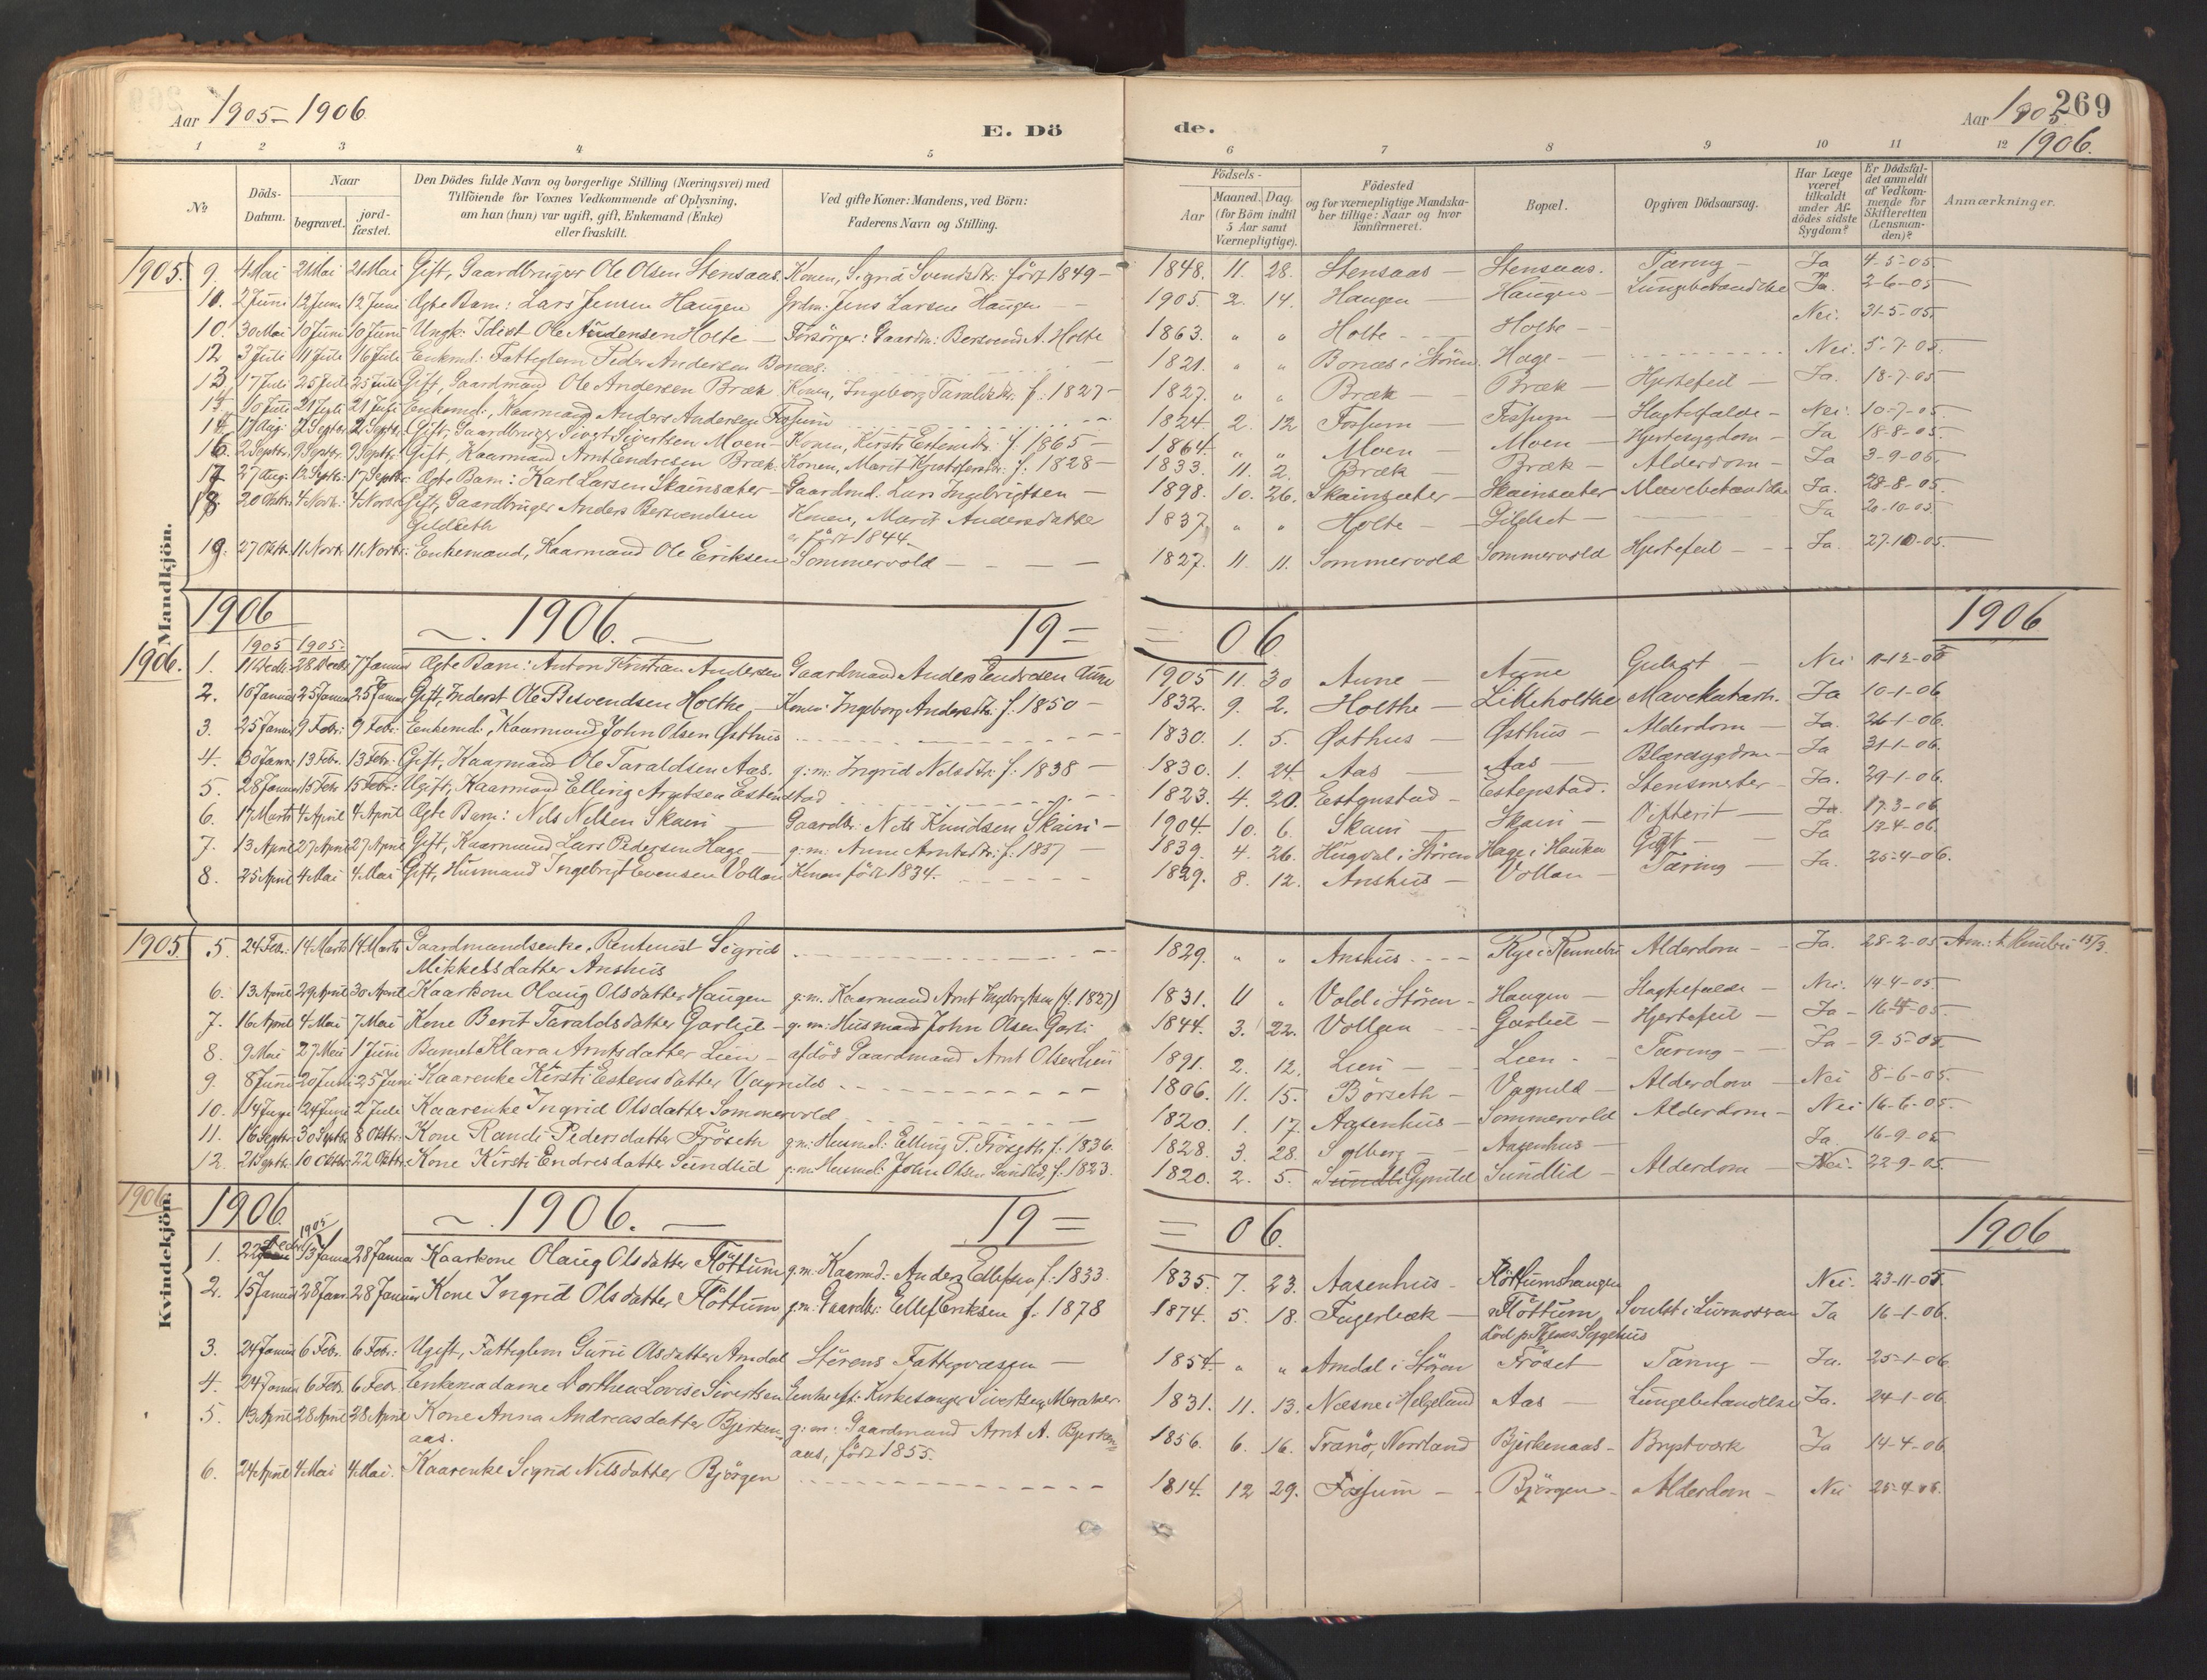 Aar 1905-1906
E. Dö
de.
Aar 1905 269
1906.
1 2 3 4 5 6 7 8 9 10 11 12
№
Döds-Datum.
Naar
begravet.
jord-fæstet.
Den Dödes fulde Navn og borgerlige Stilling (Næringsvei) med
Tilföiende for Voxnes Vedkommende af Oplysning,
om han (hun) var ugift, gift, Enkemand (Enke)
eller fraskilt.
Ved gifte Koner: Mandens, ved Börn:
Faderens Navn og Stilling.
Födsels-
Aar
Maaned. Dag.
(for Börn indtil
5 Aar samt
Værnepligtige).
Födested
og for værnepligtige Mandska-
ber tillige: Naar og hvor
konfirmeret.
Bopæl.
Opgiven Dödsaarsag.
Har Læge
været
tilkaldt
under Af-
dödes sidste
Sygdom?
Er Dödsfal-
det anmeldt
af Vedkom-
mende for
Skifteretten
(Lensman-
den)?
Anmærkninger.
Mandkjön.
1905. 9. 4 Mai 21 Mai 21 Mai Gift, Gaardbruger Ole Olsen Stensaas. Konen, Sigrid Svendsdtr. född 1849 - 1848. 11. 28. Stensaas - Stensaas. Tæring - Ja 4-5-05.
10. 2 Juni 12 Juni 12 Juni Ægte Barn: Lars Jensen Haugen Grdm. Jens Larsen Haugen - 1905. 2. 14. Haugen - Haugen - Lungebetændelse Ja. 2-6-05
10. 30 Mai 10 Juni 10 Juni Ungk. Idiot Ole Andersen Holte - Forsørger: Gaardm. Bersvend A. Holte 1863. " " Holte - Holte - Nei. 31-5-05.
12 3 Juli 11 Juli 16 Juli Enkmd. Fattiglem Peder Andersen Bonæs. 1821. " " Bonæs i Stören. Hage - Nei. 5-7-05.
13. 17 Juli 25 Juli 25 Juli Gift, Gaardmand Ole Andersen Bræk Konen, Ingeborg Taraldsdtr. f. 1827 - 1827. " " Bræk - Bræk - Hjertefeil - Ja. 18-7-05
10 Juli 21 Juli 21 Juli Enkemd., Kaarmand Anders Andersen Fossum 1824. 2. 12 Fossum - Fossum - Slagtilfælde - Nei. 10-7-05.
17 Aug. 2 Septbr. 2 Septbr. Gift, Gaardbruger Sivert Sivertsen Moen - Konen, Kirsti Estensdtr. f. 1865 - 1864. " " Moen - Moen - Hjertesygdom - Ja 18-8-05.
16. 2 Septbr. 9 Septbr. 9 Septbr. Gift, Kaarmand Arnt Endresen Bræk. Konen, Marit Kristofersdtr. f. 1828 - 1833. 11. 2. Bræk - Bræk - Alderdom - Ja 3-9-05.
17 27 Aug. 12 Septbr. 17 Septbr. Ægte Barn: Karl Larsen Skainsæter - Gaardmd. Lars Ingebrigtsen - 1898. 10. 26. Skainsæter - Skainsæter Mavebetændelse Ja. 28-8-05.
18. 20 Oktbr. 4 Novbr. 4 Novbr. Gift, Gaardbruger Anders Bersvendsen Konen, Marit Andersdatter 1837. " " Holte - Gildset - Ja 20-10-05.
Gildseth er född 1844.
19. 27 Oktbr. 11 Novbr. 11 Novbr. Enkemand, Kaarmand Ole Eriksen Sommervold - 1827. 11. 11. Sommervold Sommervold Hjertefeil - Ja. 27-10-05.
1906 1906. 19= =06. 1906
1905 1905.
1906. 1. 11 Decbr. 28 Decbr. 7 Januar Ægte Barn: Anton Kristian Andersen Gaardmand Anders Endresen Aune 1905 11. 30 Aune - Aune Gulsot - Nei 11-12-05
2. 10 Januar 25 Januar 25 Januar Gift, Inderst Ole Besvendsen Holthe - Konen: Ingeborg Andersdtr. f. 1850 - 1832. 9. 2. Holthe - Lilleholthe Mavekatarh. Ja 10-1-06.
3. 25 Januar 9 Febr. 9 Febr. Enkemd., Kaarmand John Olsen Østhus 1830. 1. 5. Østhus - Østhus - Alderdom - Ja. 26-1-06.
4. 30 Januar 13 Febr. 13 Febr. Gift, Kaarmand Ole Taraldsen Aas. g.m. Ingrid Nilsdtr. f. 1838 - 1830. 1. 24. Aas - Aas - Blæresygdom - Ja 31-1-06.
5. 28 Januar 15 Febr. 15 Febr. Ugift, Kaarmand Elling Arntsen Estenstad 1823. 4. 20. Estenstad - Estenstad. Stensmerter - Ja. 29-1-06.
6. 17 Marts 4 April 4 April Ægte Barn: Nils Nilsen Skain - Gaardbr. Nils Knudsen Skain - 1904. 10. 6. Skain - Skain - Difterit - Ja. 17-3-06
7. 13 April 27 April 27 April Gift, Kaarmand Lars Pedersen Hage - g.m. Anne Arntsdtr. f. 1837 - 1839. 4. 26. Hugdal i Stören Hage i Hauka Gigt - Ja 13-4-06.
8. 25 April 4 Mai 4 Mai Gift, Husmand Ingebrigt Evensen Vollan Konen född 1834. 1829. 8. 12. Anshus - Vollan - Tæring - Ja. 25-4-06.
Kvindekjön.
1905 5. 24 Febr. 14 Marts 14 Marts Gaardmandsenke, Rentenist Sigrid 1829. " " Anshus Rye i Rennebu Alderdom - Ja. 28-2-05. Anm: t. Rennebu 15/3
Mikkelsdatter Anshus
6. 13 April 29 April 30 April Kaarkone Olaug Olsdatter Haugen g.m. Kaarmand Arnt Ingebrigtsen (f. 1827) 1831. " " Vold i Stören - Haugen - Slagtilfælde - Nei. 14-4-05.
7. 16 April 4 Mai 7 Mai Kone Berit Taraldsdatter Garliet - g.m. Husmand John Olsen Garli 1844. 3. 22. Vollan - Garliet - Hjertefeil - Ja - 16-4-05.
8. 9 Mai 27 Mai 1 Juni Barnet Klara Arntsdatter Lien - afdöd Gaardmand Arnt Olsen Lien 1891. 2. 12. Lien - Lien - Tæring - Ja - 9-5-05
9. 8 Juni 20 Juni 25 Juni Kaarenke Kirsti Estensdatter Vagnild 1806. 11. 15. Börseth - Vagnild - Alderdom - Nei 8-6-05.
10. 14 Juni 24 Juni 2 Juli Kaarenke Ingrid Olsdatter Sommervold 1820. 1. 17. Aasenhus - Sommervold Alderdom - Nei 16-6-05.
11. 16 Septbr. 30 Septbr. 8 Oktbr. Kone Randi Pedersdatter Fröseth g.m. Husmd. Elling P. Fröseth f. 1836. 1828. 3. 28. Solberg - Aasenhus - Ja. 16-9-05
12. 21 Septbr. 10 Oktbr. 22 Oktbr. Kone Kirsti Endresdatter Sundlid g.m. Husmd. John Olsen Sundlid, f. 1823. 1820. 2. 5. Sundli Gynild Sundlid - Alderdom - Nei. 22-9-05.
1906 1906 1906. 19= =06. 1906
1905
1. 22 13 Januar 28 Januar Kaarkone Olaug Olsdatter Flöttum g.m. Kaarmd. Anders Ellefsen f. 1833. 1835. 7. 23. Aasenhus - Flöttumshaugen Nei. 23-11-05
2. 15 Januar 28 Jan. 28 Januar Kone Ingrid Olsdatter Flöttum g.m. Gaardbr. Ellef Eriksen f. 1878 1874. 5. 18. Fagerbæk - Flöttum, Svulst i Ja 16-1-06.
död p. Sygehus
3. 24 Januar 6 Febr. 6 Febr. Ugift, Fattiglem Guru Olsdatter Amdal Störens Fattigvæsen - 1854. " " Amdal i Stören Fröset - Tæring - Ja. 25-1-06
4. 24 Januar 6 Febr. 6 Febr. Enkemadame Dorthea Lovise Sivertsen Enke eft. Kirkesanger Sivertsen, Meraker. 1831. 11. 13. Næsne i Helgeland Aas - Lungebetændelse Ja. 24-1-06
5. 13 April 28 April 28 April Kone Anna Andreasdatter Bjerken- g.m. Gaardmand Arnt A. Bjerken- 1856. 6. 16. Tranö, Norrland Bjerkenaas - Brystværk Ja 14-4-06
aas. aas, född 1855.
6. 24 April 4 Mai 4 Mai. Kaarenke Sigrid Nilsdatter Bjørgen 1814. 12 29. Fossum - Bjørgen - Alderdom - Nei 25-4-06.